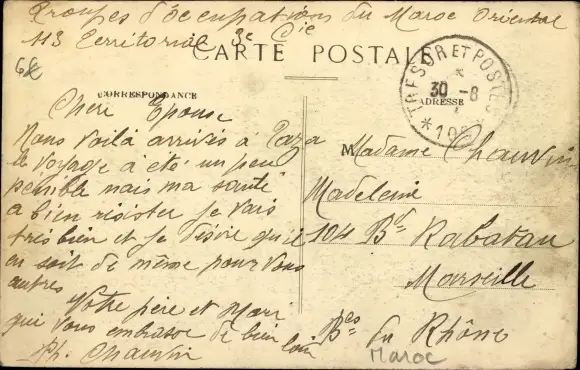 Troupes d'occupations du Maroc Oriental
113 Territorial 3e Cie
CARTE POSTALE
TRESOR ET POSTES
30 - 8
CORRESPONDANCE
ADRESSE
Chere Epouse
Nous voilà arrivés à Taza
le voyage à été un peu
penible mais ma santé
a bien résister je vais
très bien et je désire qu'il
en soit de même pour vous
autres
Votre père et Mari
qui vous embrasse de bien loin
Ph. Chauvin
M Madame Chauvin
Madeleine
104 Bd Rabatau
Marseille
Bes du Rhône
Maroc